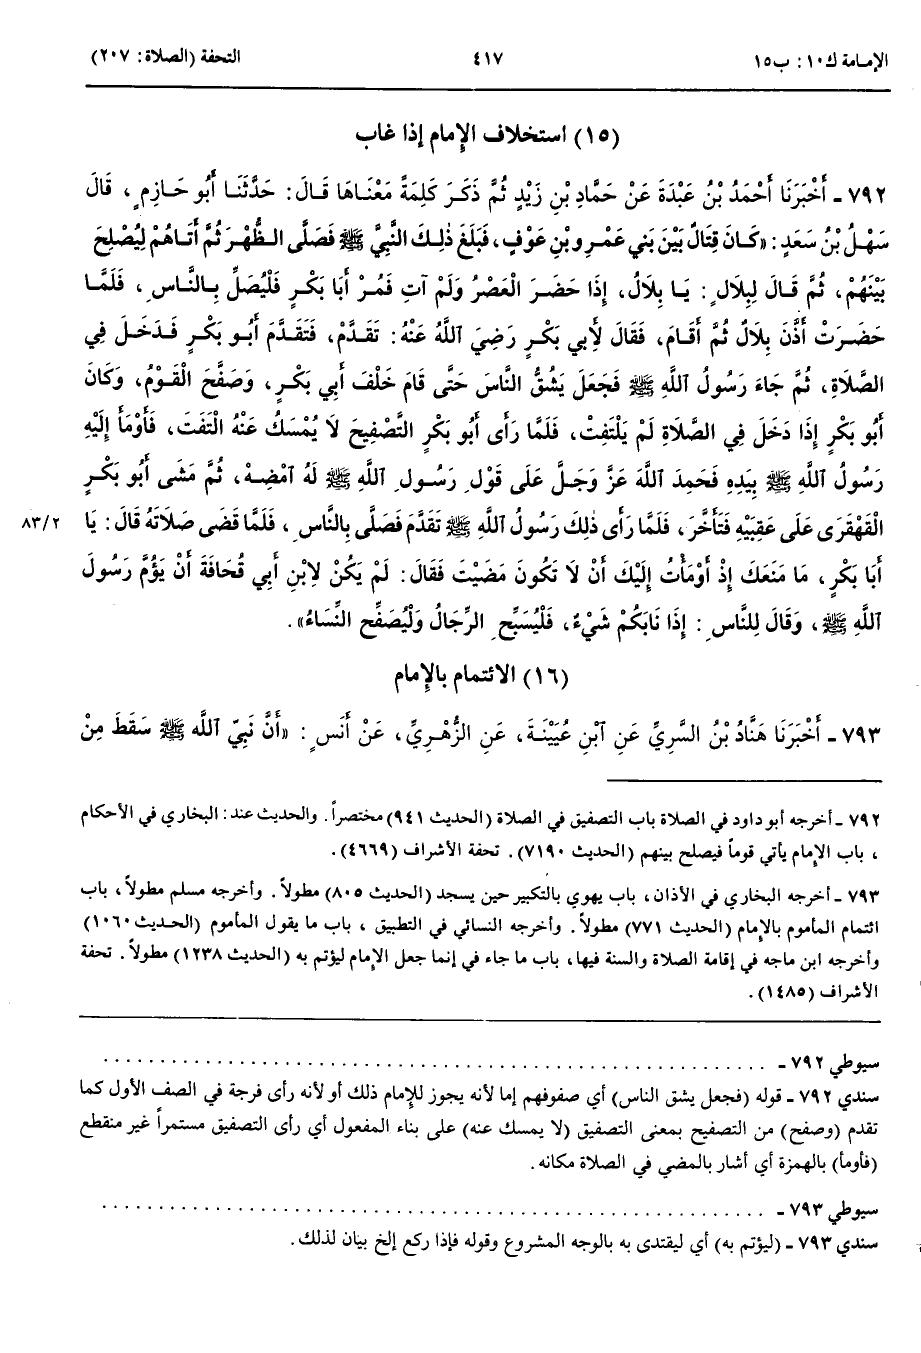 الإمامة ك١٠: ب١٥ ٤١٧ التحفة (الصلاة: ٢٠٧)
(١٥) استخلاف الإمام إذا غاب
٧٩٢ - أَخْبَرَنَا أَحْمَدُ بْنُ عَبْدَةَ عَنْ حَمَّادِ بْنِ زَيْدٍ ثُمَّ ذَكَرَ كَلِمَةً مَعْنَاهَا قَالَ: حَدَّثَنَا أَبُو حَازِمٍ، قَالَ
سَهْلُ بْنُ سَعَدٍ: «كَانَ قِتَالٌ بَيْنَ بَنِي عَمْرِو بْنِ عَوْفٍ، فَبَلَغَ ذٰلِكَ النَّبِيَّ ﷺ فَصَلَّى الظُّهْرَ ثُمَّ أَتَاهُمْ لِيُصْلِحَ
بَيْنَهُمْ، ثُمَّ قَالَ لِبِلَالٍ: يَا بِلَالُ، إِذَا حَضَرَ الْعَصْرُ وَلَمْ آتِ فَمُرْ أَبَا بَكْرٍ فَلْيُصَلِّ بِالنَّاسِ، فَلَمَّا
حَضَرَتْ أَذَّنَ بِلَالٌ ثُمَّ أَقَامَ، فَقَالَ لأَبِي بَكْرٍ رَضِيَ ٱللَّهُ عَنْهُ: تَقَدَّمْ، فَتَقَدَّمَ أَبُو بَكْرٍ فَدَخَلَ فِي
الصَّلَاةِ، ثُمَّ جَاءَ رَسُولُ ٱللَّهِ ﷺ فَجَعَلَ يَشُقُّ النَّاسَ حَتَّى قَامَ خَلْفَ أَبِي بَكْرٍ، وَصَفَّحَ الْقَوْمُ، وَكَانَ
أَبُو بَكْرٍ إِذَا دَخَلَ فِي الصَّلَاةِ لَمْ يَلْتَفِتْ، فَلَمَّا رَأَى أَبُو بَكْرٍ التَّصْفِيحَ لَا يُمْسَكُ عَنْهُ الْتَفَتَ، فَأَوْمَأَ إِلَيْهِ
رَسُولُ ٱللَّهِ ﷺ بِيَدِهِ فَحَمِدَ ٱللَّهَ عَزَّ وَجَلَّ عَلَى قَوْلِ رَسُولِ ٱللَّهِ ﷺ لَهُ ٱمْضِهْ، ثُمَّ مَشَى أَبُو بَكْرٍ
الْقَهْقَرَى عَلَى عَقِبَيْهِ فَتَأَخَّرَ، فَلَمَّا رَأَى ذٰلِكَ رَسُولُ ٱللَّهِ ﷺ تَقَدَّمَ فَصَلَّى بِالنَّاسِ، فَلَمَّا قَضَى صَلَاتَهُ قَالَ: يَا ٨٣/٢
أَبَا بَكْرٍ، مَا مَنَعَكَ إِذْ أَوْمَأْتُ إِلَيْكَ أَنْ لَا تَكُونَ مَضَيْتَ فَقَالَ: لَمْ يَكُنْ لِابْنِ أَبِي قُحَافَةَ أَنْ يَؤُمَّ رَسُولَ
ٱللَّهِ ﷺ، وَقَالَ لِلنَّاسِ: إِذَا نَابَكُمْ شَيْءٌ، فَلْيُسَبِّحِ الرِّجَالُ وَلْيُصَفِّحِ النِّسَاءُ».
(١٦) الائتمام بالإمام
٧٩٣ - أَخْبَرَنَا هَنَّادُ بْنُ السَّرِيِّ عَنِ ٱبْنِ عُيَيْنَةَ، عَنِ الزُّهْرِيِّ، عَنْ أَنَسٍ: «أَنَّ نَبِيَّ ٱللَّهِ ﷺ سَقَطَ مِنْ
٧٩٢ - أخرجه أبو داود في الصلاة باب التصفيق في الصلاة (الحديث ٩٤١) مختصراً. والحديث عند: البخاري في الأحكام
، باب الإمام يأتي قوماً فيصلح بينهم (الحديث ٧١٩٠). تحفة الأشراف (٤٦٦٩).
٧٩٣ - أخرجه البخاري في الأذان، باب يهوي بالتكبير حين يسجد (الحديث ٨٠٥) مطولاً. وأخرجه مسلم مطولاً، باب
ائتمام المأموم بالإمام (الحديث ٧٧١) مطولاً. وأخرجه النسائي في التطبيق، باب ما يقول المأموم (الحديث ١٠٦٠)
وأخرجه ابن ماجه في إقامة الصلاة والسنة فيها، باب ما جاء في إنما جعل الإمام ليؤتم به (الحديث ١٢٣٨) مطولاً. تحفة
الأشراف (١٤٨٥).
سيوطي ٧٩٢ - . . . . . . . . . . . . . . . . . . . . . . . . . . . . . . . . . . . . . . . .
سندي ٧٩٢ - قوله (فجعل يشق الناس) أي صفوفهم إما لأنه يجوز للإمام ذلك أو لأنه رأى فرجة في الصف الأول كما
تقدم (وصفح) من التصفيح بمعنى التصفيق (لا يمسك عنه) على بناء المفعول أي رأى التصفيق مستمراً غير منقطع
(فأومأ) بالهمزة أي أشار بالمضي في الصلاة مكانه.
سيوطي ٧٩٣ - . . . . . . . . . . . . . . . . . . . . . . . . . . . . . . . . . . . . . . . .
سندي ٧٩٣ - (ليؤتم به) أي ليقتدى به بالوجه المشروع وقوله فإذا ركع إلخ بيان لذلك.